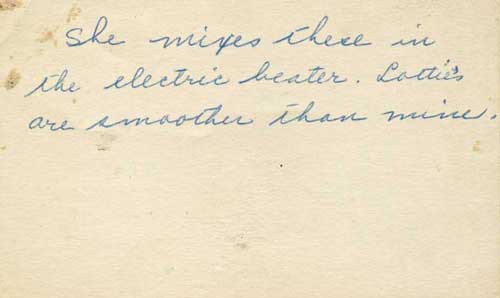 She mixes these in
the electric beater. Lottie's
are smoother than mine.